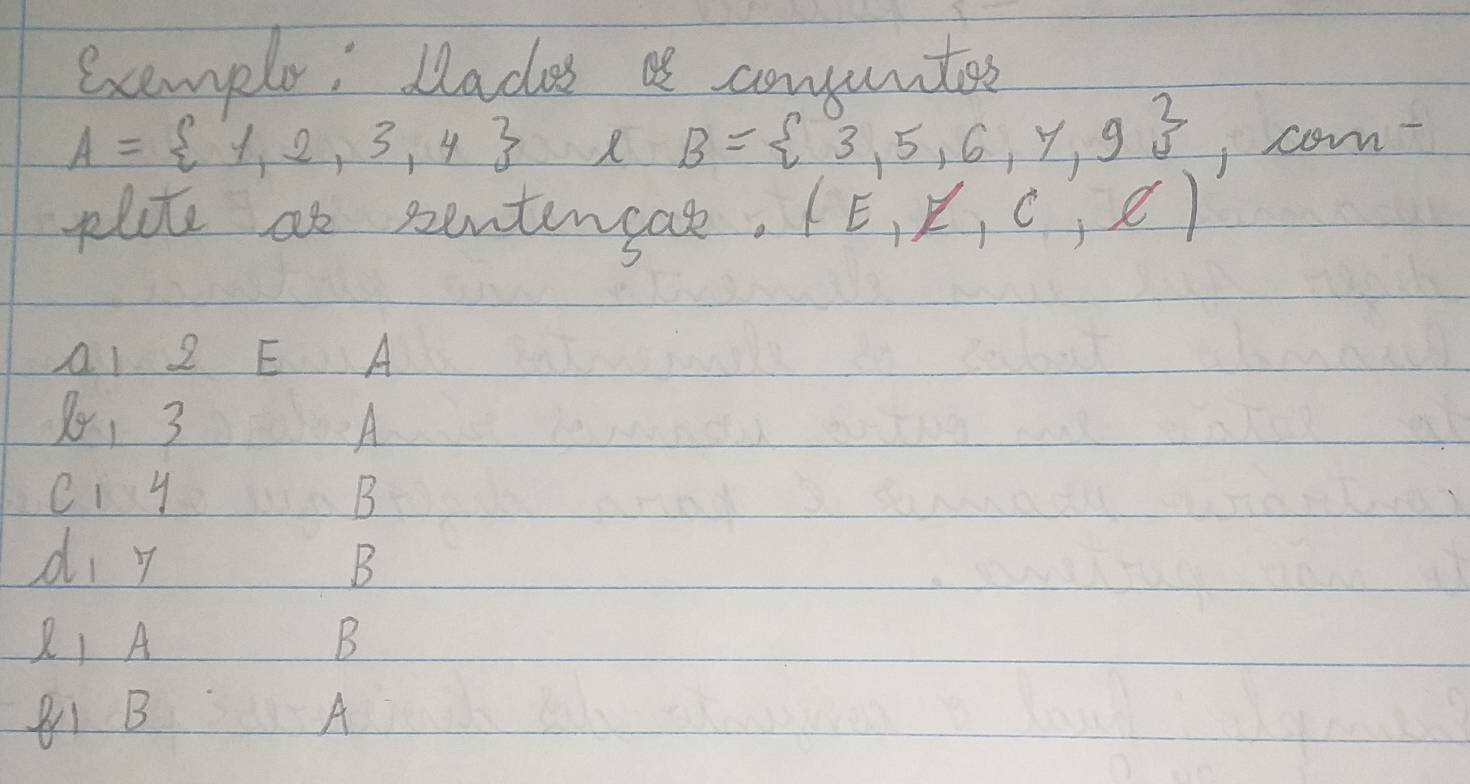 Exemplo: Dados os conjuntos
A = { 1, 2, 3, 4 } e B = { 3, 5, 6, 7, 9 }, com-
plete as sentenças. (E, E̸, C, C̸)
a) 2 E A
b) 3 A
c) 4 B
d) 7 B
e) A B
f) B A